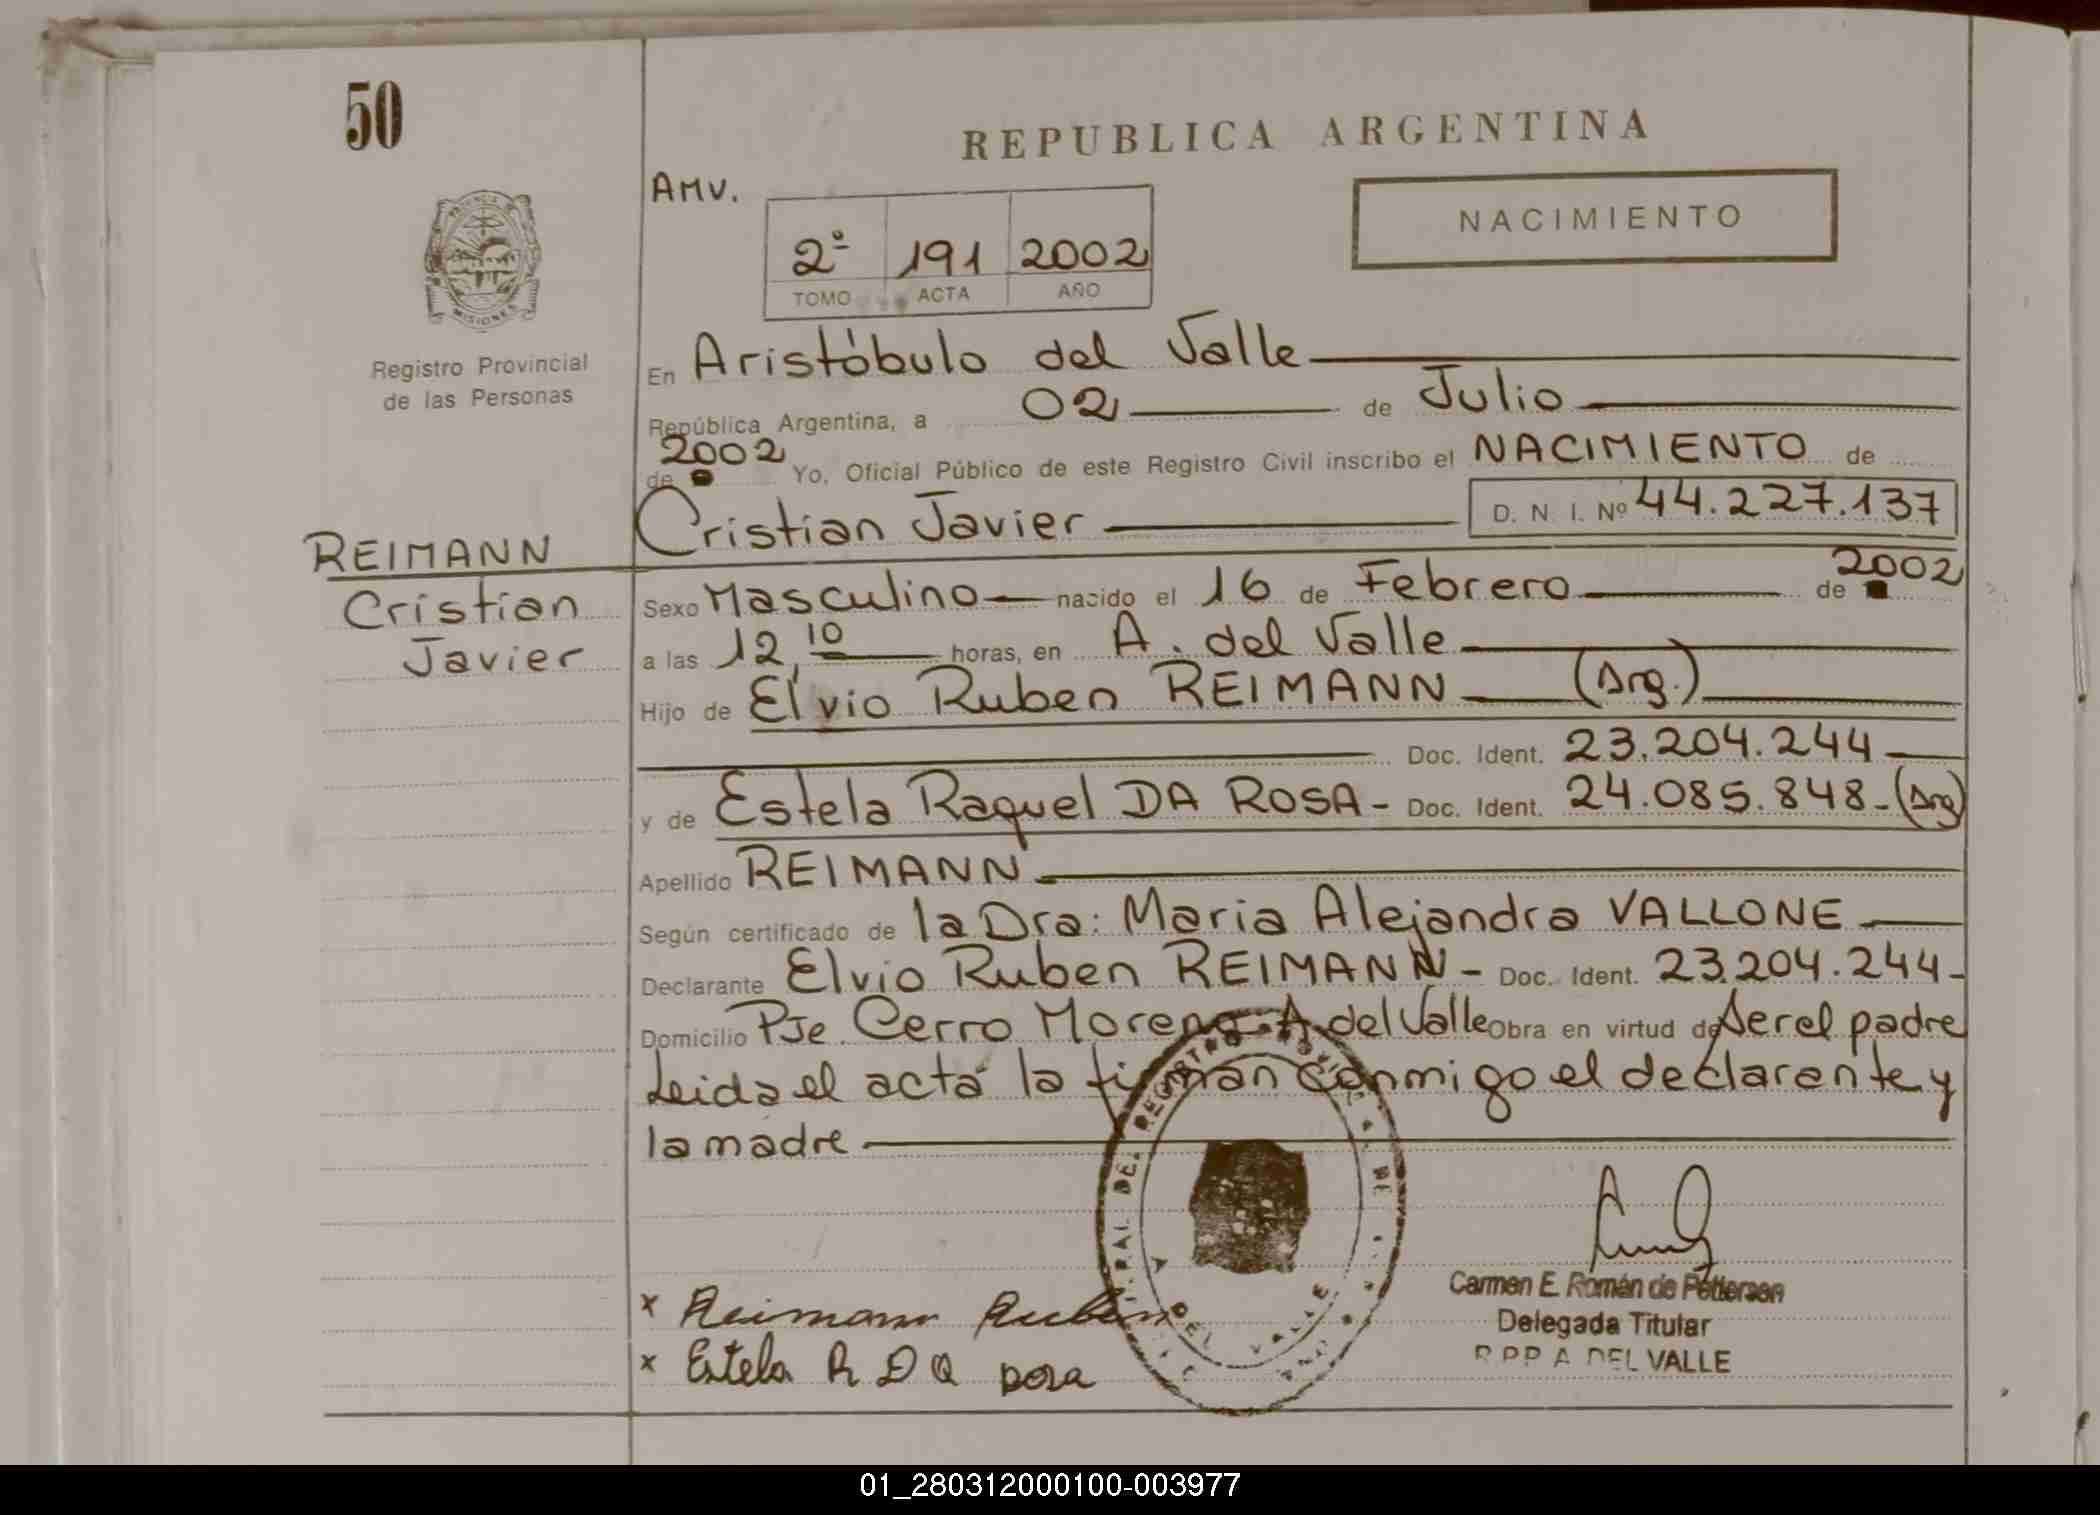 50
REPUBLICA ARGENTINA
AMV.
NACIMIENTO
2º 191 2002
TOMO ACTA AÑO
MISIONES
Registro Provincial
de las Personas
En Aristóbulo del Valle
República Argentina, a 02 de Julio
de 2002 Yo, Oficial Público de este Registro Civil inscribo el NACIMIENTO de
Cristian Javier D. N. I. Nº 44.227.137
REIMANN
Cristian
Javier
Sexo Masculino nacido el 16 de Febrero de 2002
a las 12,10 horas, en A. del Valle
Hijo de Elvio Ruben REIMANN (Arg.)
Doc. Ident. 23.204.244
y de Estela Raquel DA ROSA - Doc. Ident. 24.085.848 - (Arg)
Apellido REIMANN
Según certificado de la Dra: Maria Alejandra VALLONE
Declarante Elvio Ruben REIMANN - Doc. Ident. 23.204.244 -
Domicilio Pje. Cerro Moreno A del Valle Obra en virtud de ser el padre
Leida el acta la firman conmigo el declarante y
la madre
DEL REGISTRO
A DEL VALLE
x Reimann Ruben
x Estela R D a Rosa
Carmen E. Román de Pettersen
Delegada Titular
R.P.P. A. DEL VALLE
01_280312000100-003977